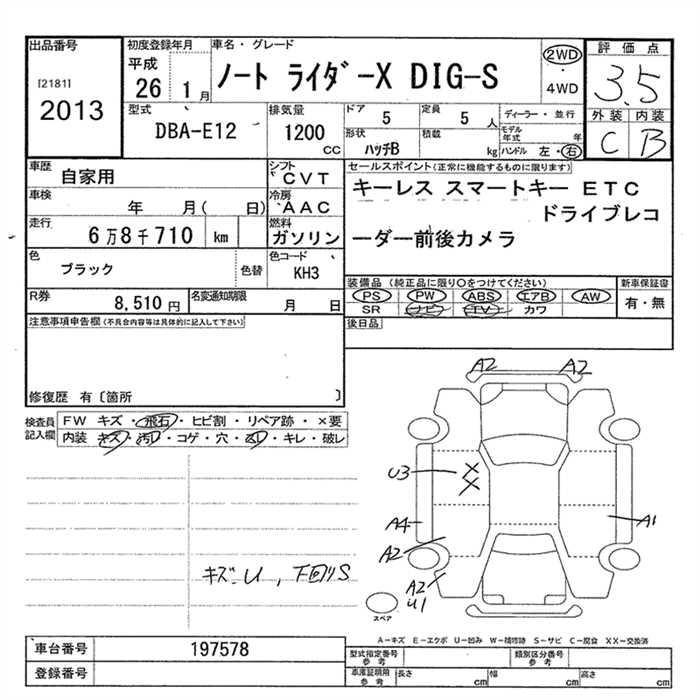 出品番号
[2181]
2013
初度登録年月
平成
26 1月
車名・グレード
ノート ライダーX DIG-S
2WD
・
4WD
評価点
3.5
外装 内装
C B
型式
DBA-E12
排気量
1200 CC
ドア
5
定員
5人
形状
ハッチB
積載
kg
ディーラー・並行
モデル年式 年
ハンドル 左・右
車歴
自家用
シフト
CVT
車検
年 月( 日)
冷房
AAC
走行
6万8千710 km
燃料
ガソリン
色
ブラック
色替
色コード
KH3
R券
8,510円
名変通知期限
月 日
セールスポイント(正常に機能するものに限ります)
キーレス スマートキー ETC
ドライブレコ
ーダー前後カメラ
装備品(純正品に限り○をつけてください)
PS PW ABS エアB AW
SR ナビ TV カワ
新車保証書
有・無
後日品
注意事項申告欄(不具合内容等は具体的に記入して下さい)
修復歴 有〔箇所 〕
検査員記入欄
FW キズ・飛石・ヒビ割・リペア跡・×要
内装 キズ・汚れ・コゲ・穴・・キレ・破レ
キズ・U, 下回りS
A2 A2
U3
A4
A1
A2
A2
U1
スペア
A-キズ E-エクボ U-凹み W-補修跡 S-サビ C-腐食 XX-交換済
車台番号
197578
登録番号
型式指定番号
参考
類別区分番号
参考
車庫証明用
参考
長さ cm 幅 cm 高さ cm